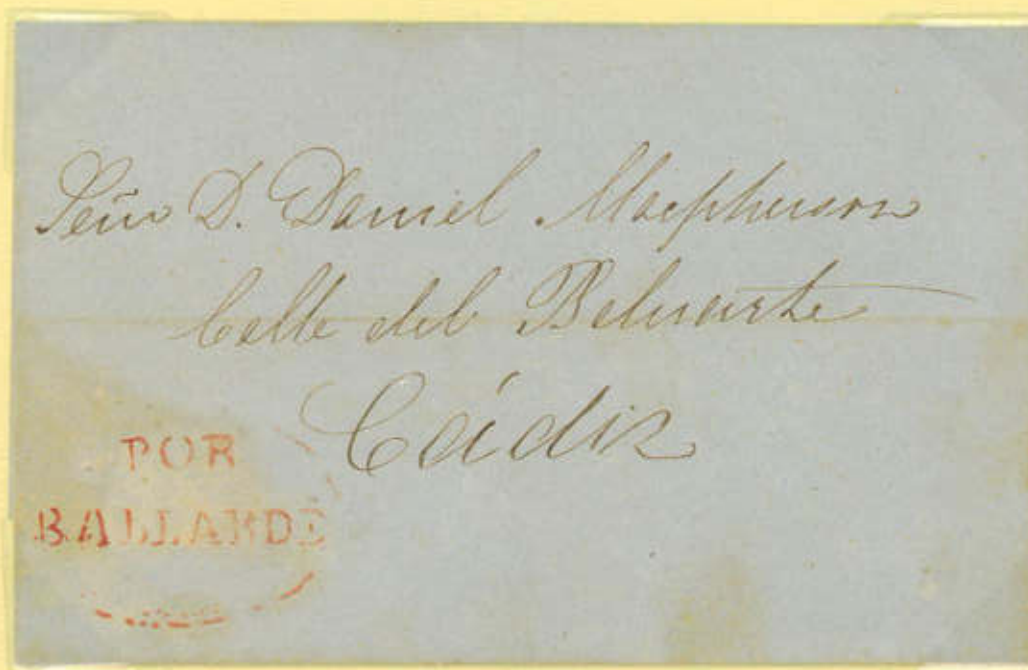 Señr D. Daniel Macpherson
Calle del Baluarte
Cádiz
POR
BALLARDE